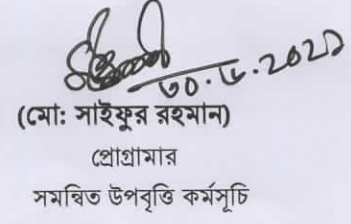 ৩০.৫.২০২১
(মো: সাইফুর রহমান)
প্রোগ্রামার
সমন্বিত উপবৃত্তি কর্মসূচি